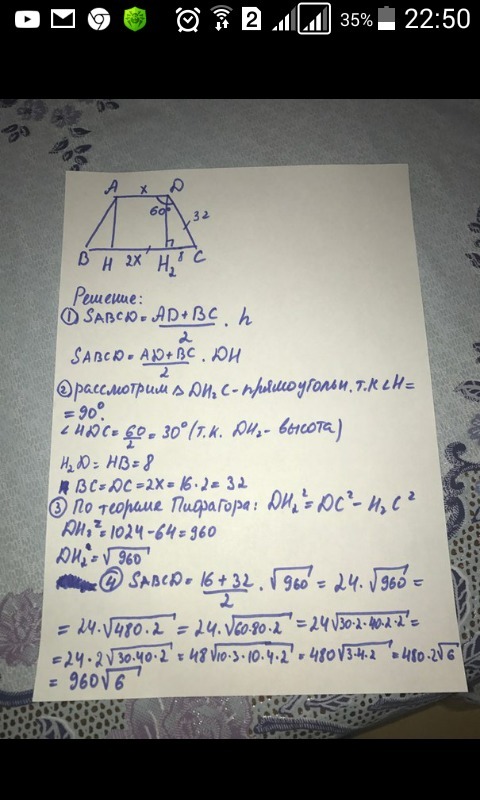 2 35% 22:50
A x D
60°
32
B H 2x H₂ 8 C
Решение:
① SABCD = AD+BC/2 · h
SABCD = AD+BC/2 · DH
② рассмотрим △ DH₂C - прямоугольн. т.к ∠H =
= 90°.
∠HDC = 60/2 = 30° (т.к. DH₂ - высота)
H₂D = HB = 8
BC = DC = 2x = 16·2 = 32
③ По теореме Пифагора: DH₂² = DC² - H₂C²
DH₂² = 1024 - 64 = 960
DH₂² = √960
④ SABCD = 16+32/2 · √960 = 24·√960 =
= 24·√480·2 = 24·√60·80·2 = 24√30·2·40·2·2 =
= 24·2√30·40·2 = 48√10·3·10·4·2 = 480√3·4·2 = 480·2√6
= 960√6